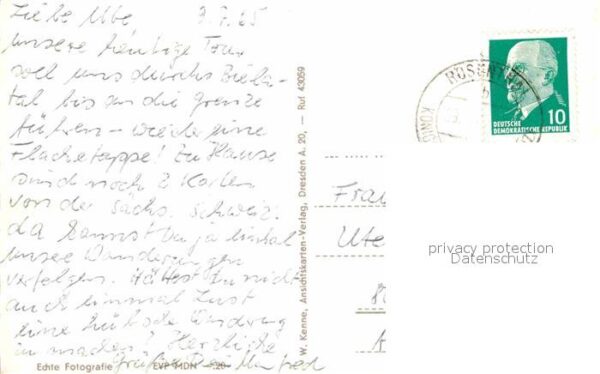 Liebe Ute 9.7.65
unsere heutige Tour
soll uns durchs Biela-
tal bis an die Grenze
führen - wieder eine
Flachetappe! Zu Hause
sind noch 2 Karten
von der Sächs. Schweiz.
da kannst Du ja einmal
unsere Wanderungen
verfolgen. Hättest Du nicht
auch einmal Lust
eine hübsche Wanderung
zu machen? Herzliche
Grüße Dein Manfred
Echte Fotografie EVP MDN -.20
W. Kenne, Ansichtskarten-Verlag, Dresden A. 20, — Ruf 43059
Frau
Ute
ROSENTHAL
10
DEUTSCHE
DEMOKRATISCHE REPUBLIK
privacy protection
Datenschutz